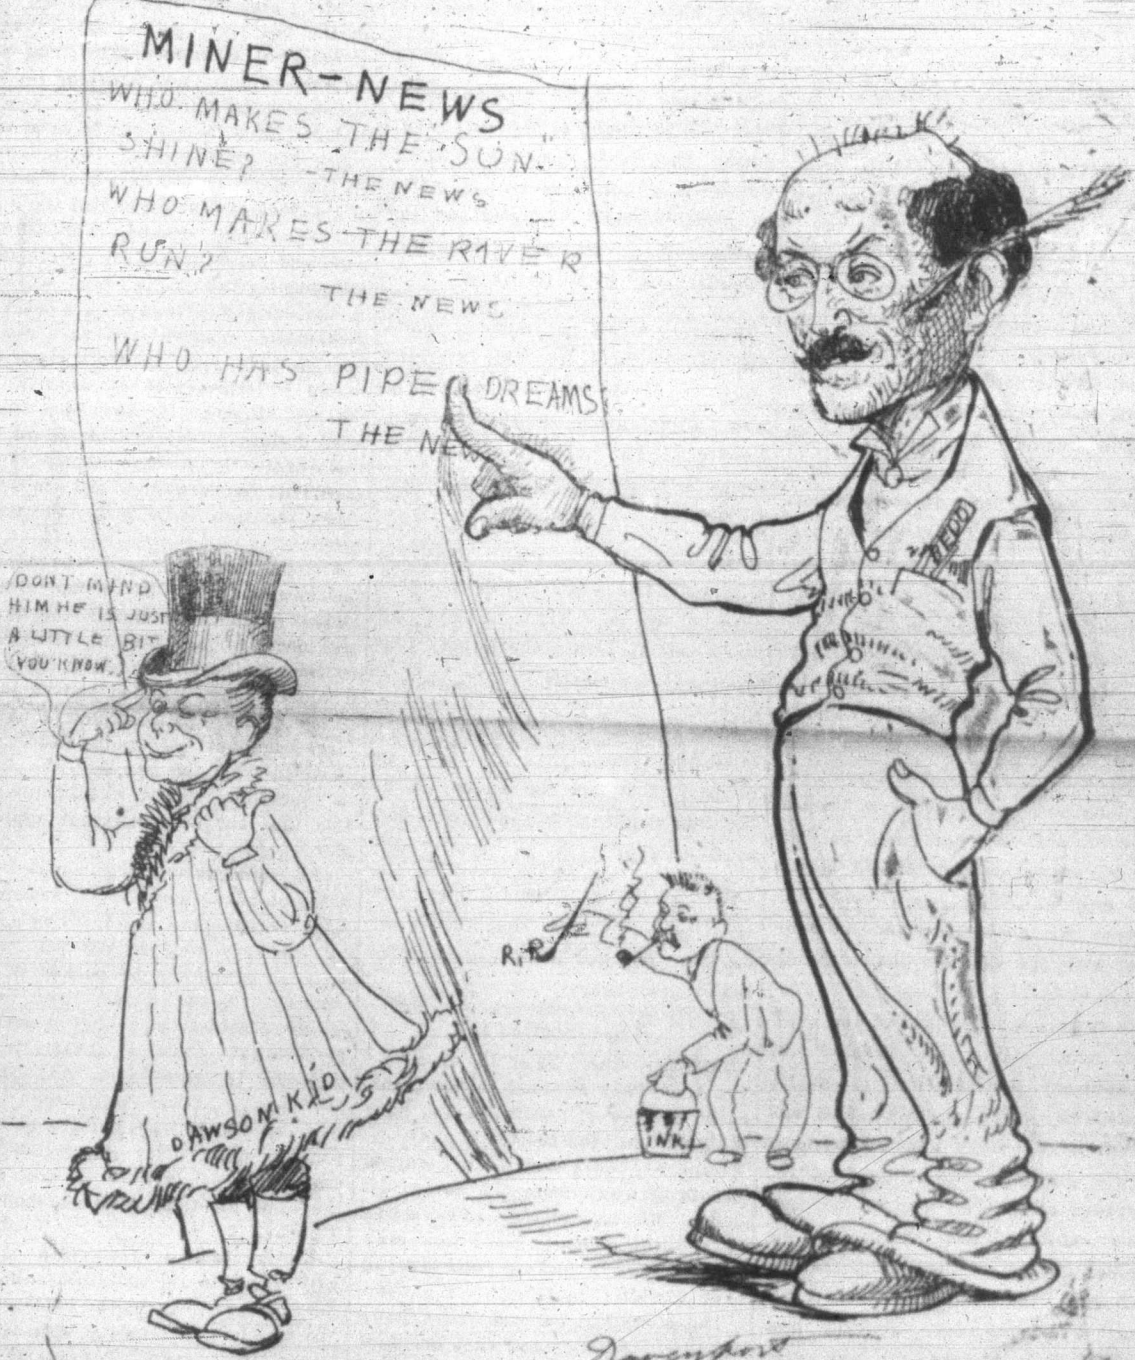 MINER-NEWS
WHO MAKES THE "SUN"
SHINE? -THE NEWS
WHO MAKES THE RIVER
RUN?
THE NEWS
WHO HAS PIPE DREAMS
THE NEW
DONT MIND
HIM HE IS JUST
A LITTLE BIT
YOU KNOW.
R.I.P.
INK
DAWSON KID
Davenport